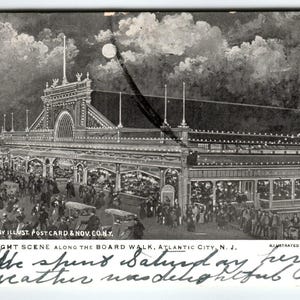 BY ILLUST. POSTCARD & NOV. CO. N.Y.
GHT SCENE ALONG THE BOARD WALK, ATLANTIC CITY, N. J.
ILLUSTRATED
We spent Saturday
weather was delightful